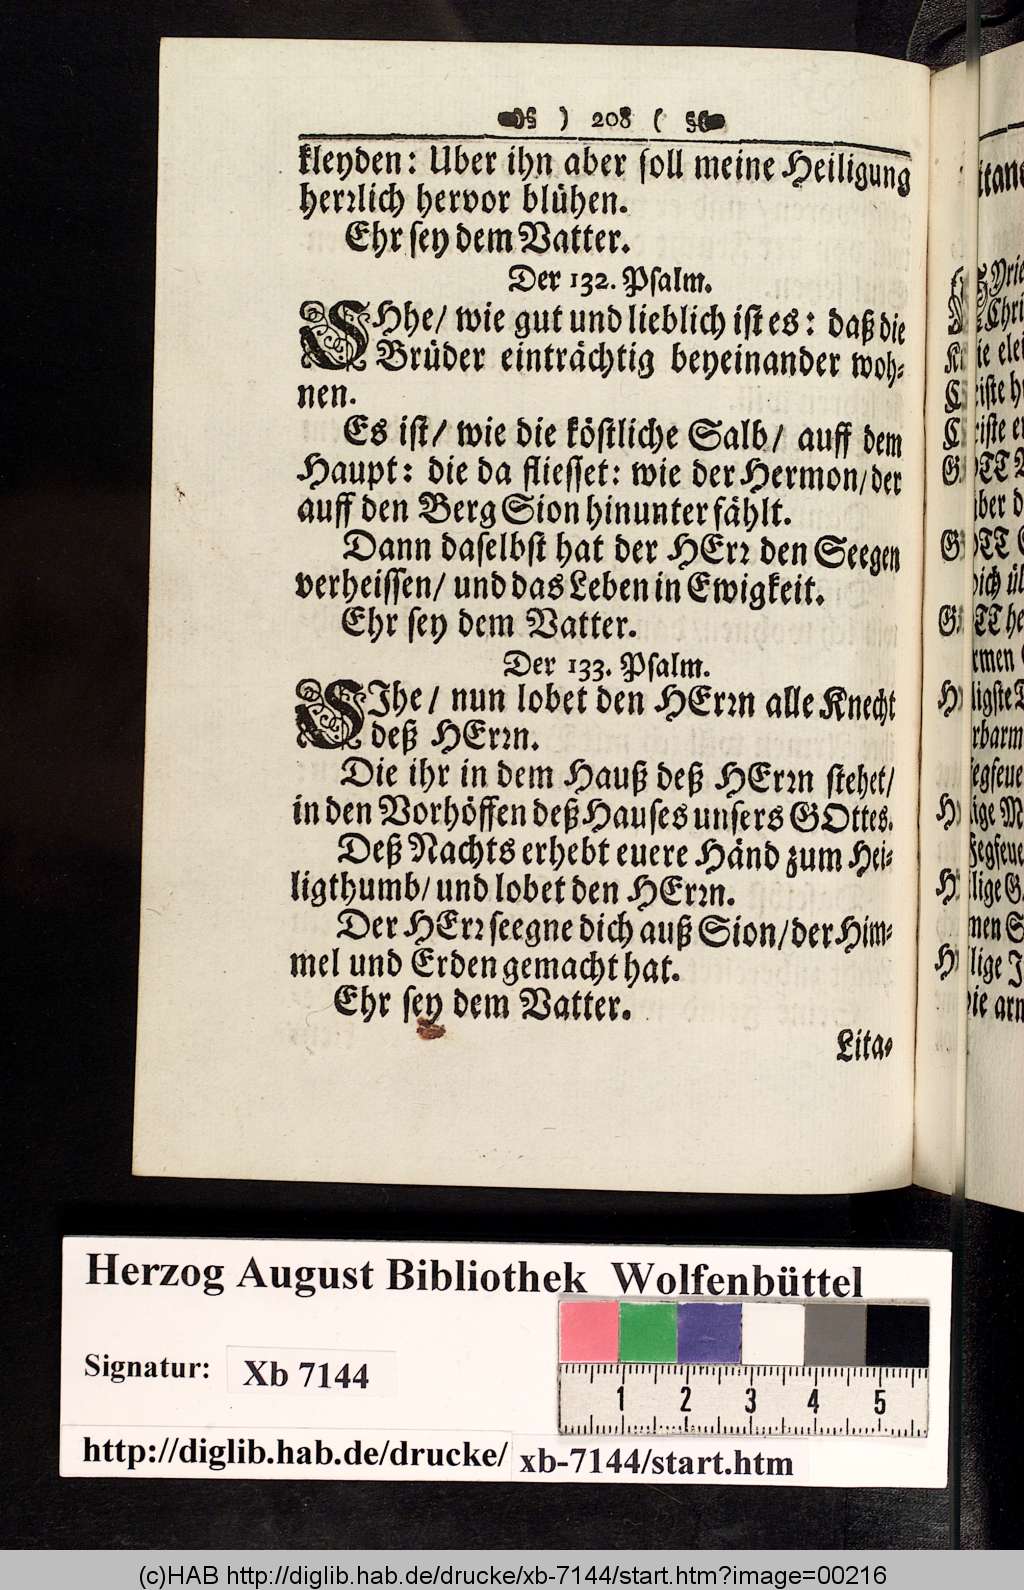 ) 208 (
kleyden: Uber ihn aber soll meine Heiligung
herrlich hervor blühen.
Ehr sey dem Vatter.
Der 132. Psalm.
SIhe/ wie gut und lieblich ist es: daß die
Brüder einträchtig beyeinander woh-
nen.
Es ist/ wie die köstliche Salb/ auff dem
Haupt: die da fliesset: wie der Hermon/ der
auff den Berg Sion hinunter fählt.
Dann daselbst hat der HErr den Seegen
verheissen/ und das Leben in Ewigkeit.
Ehr sey dem Vatter.
Der 133. Psalm.
SIhe/ nun lobet den HErrn alle Knecht
deß HErrn.
Die ihr in dem Hauß deß HErrn stehet/
in den Vorhöffen deß Hauses unsers GOttes.
Deß Nachts erhebt euere Händ zum Hei-
ligthumb/ und lobet den HErrn.
Der HErr seegne dich auß Sion/ der Him-
mel und Erden gemacht hat.
Ehr sey dem Vatter.
Lita-
Herzog August Bibliothek Wolfenbüttel
Signatur: Xb 7144
1 2 3 4 5
http://diglib.hab.de/drucke/ xb-7144/start.htm
(c)HAB http://diglib.hab.de/drucke/xb-7144/start.htm?image=00216